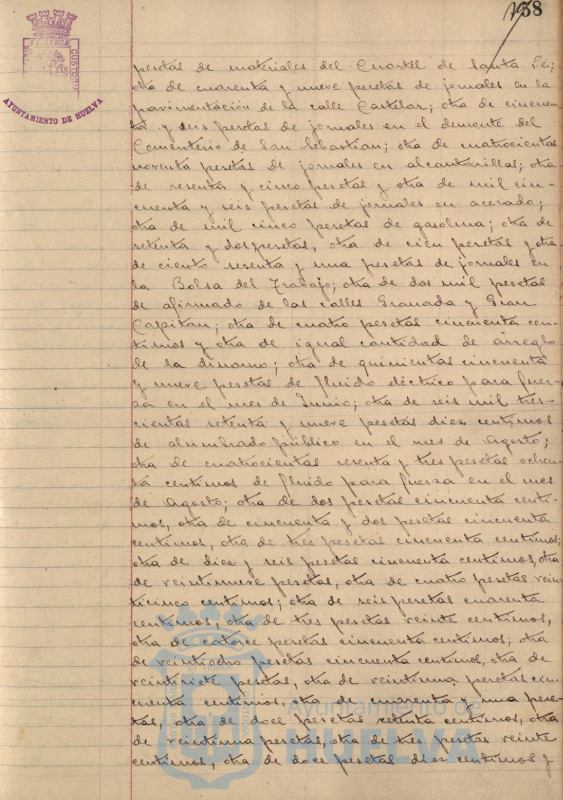 138
AYUNTAMIENTO DE HUELVA
pesetas de materiales del Cuartel de Santa Fé;
otra de cuarenta y nueve pesetas de jornales en la
pavimentación de la calle Castelar; otra de cincuen-
ta y seis pesetas de jornales en el desmonte del
Cementerio de San Sebastian; otra de cuatrocientas
noventa pesetas de jornales en alcantarillas; otra
de sesenta y cinco pesetas y otra de mil cin-
cuenta y seis pesetas de jornales en acerado;
otra de mil cinco pesetas de gasolina; otra de
setenta y dos pesetas, otra de cien pesetas y otra
de ciento sesenta y una pesetas de jornales en
la Bolsa del Trabajo; otra de dos mil pesetas
de afirmado de las calles Granada y Gran
Capitan; otra de cuatro pesetas cincuenta cen-
timos y otra de igual cantidad de arreglo
de la dinamo; otra de quinientas cincuenta
y nueve pesetas de fluido eléctrico para fuer-
za en el mes de Junio; otra de seis mil tres-
cientas setenta y nueve pesetas diez centimos
de alumbrado público en el mes de Agosto;
otra de cuatrocientas sesenta y tres pesetas ochen-
ta centimos de fluido para fuerza en el mes
de Agosto; otra de dos pesetas cincuenta centi-
mos, otra de cincuenta y dos pesetas cincuenta
centimos, otra de tres pesetas cincuenta centimos;
otra de diez y seis pesetas cincuenta centimos, otra
de veintinueve pesetas, otra de cuatro pesetas vein-
ticinco centimos; otra de seis pesetas cuarenta
centimos, otra de tres pesetas veinte centimos,
otra de catorce pesetas cincuenta centimos; otra
de veintiocho pesetas cincuenta centimos, otra de
veintisiete pesetas, otra de veintiuna pesetas cin-
cuenta centimos, otra de cuarenta y una pese-
tas, otra de doce pesetas setenta centimos, otra
de veintiuna pesetas, otra de tres pesetas veinte
centimos, otra de doce pesetas diez centimos y
Ayuntamiento de
HUELVA